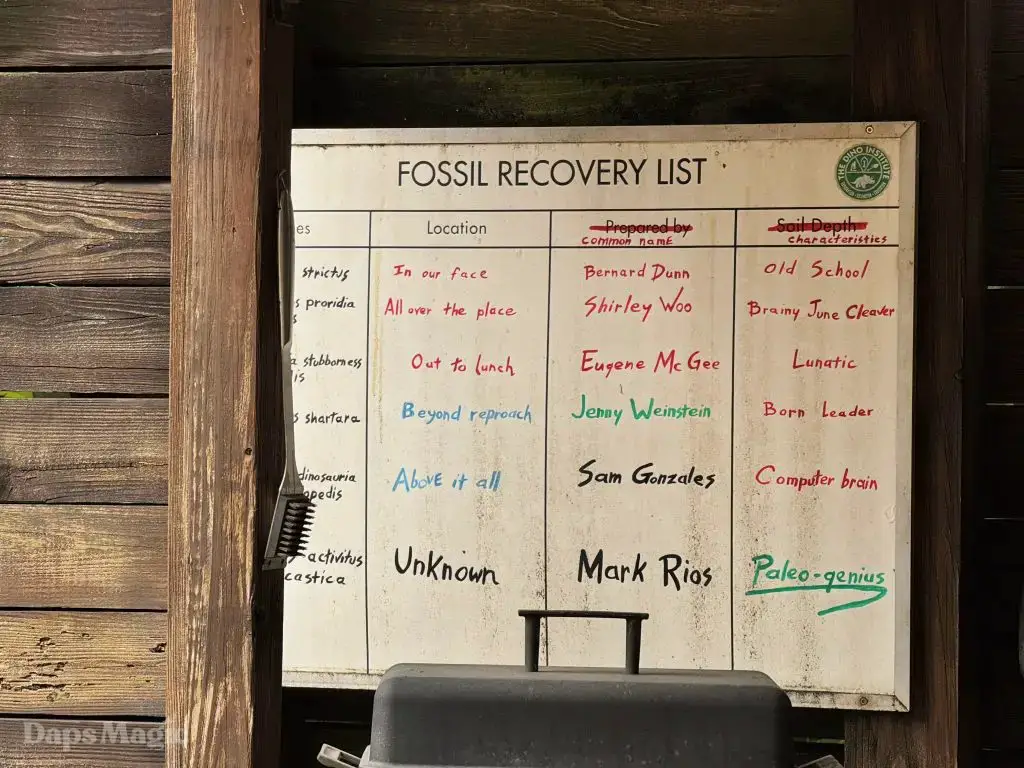 FOSSIL RECOVERY LIST
THE DINO INSTITUTE
es Location Prepared by Soil Depth
common name characteristics
strictus In our face Bernard Dunn Old School
s proridia All over the place Shirley Woo Brainy June Cleaver
s
a stubborness Out to lunch Eugene McGee Lunatic
is
s shartara Beyond reproach Jenny Weinstein Born Leader
dinosauria Above it all Sam Gonzales Computer brain
opedis
activitus Unknown Mark Rios Paleo-genius
castica
DapsMagic